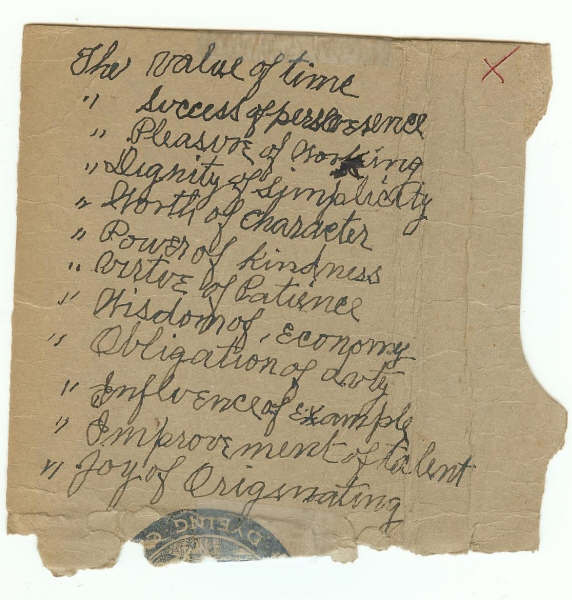 The value of time
" Success of perseverence
" Pleasure of Working
" Dignity of Simplicity
" Worth of character
" Power of kindness
" Virtue of Patience
" Wisdom of Economy
" Obligation of duty
" Influence of Example
" Improvement of talent
" Joy of Originating
X
DYEING